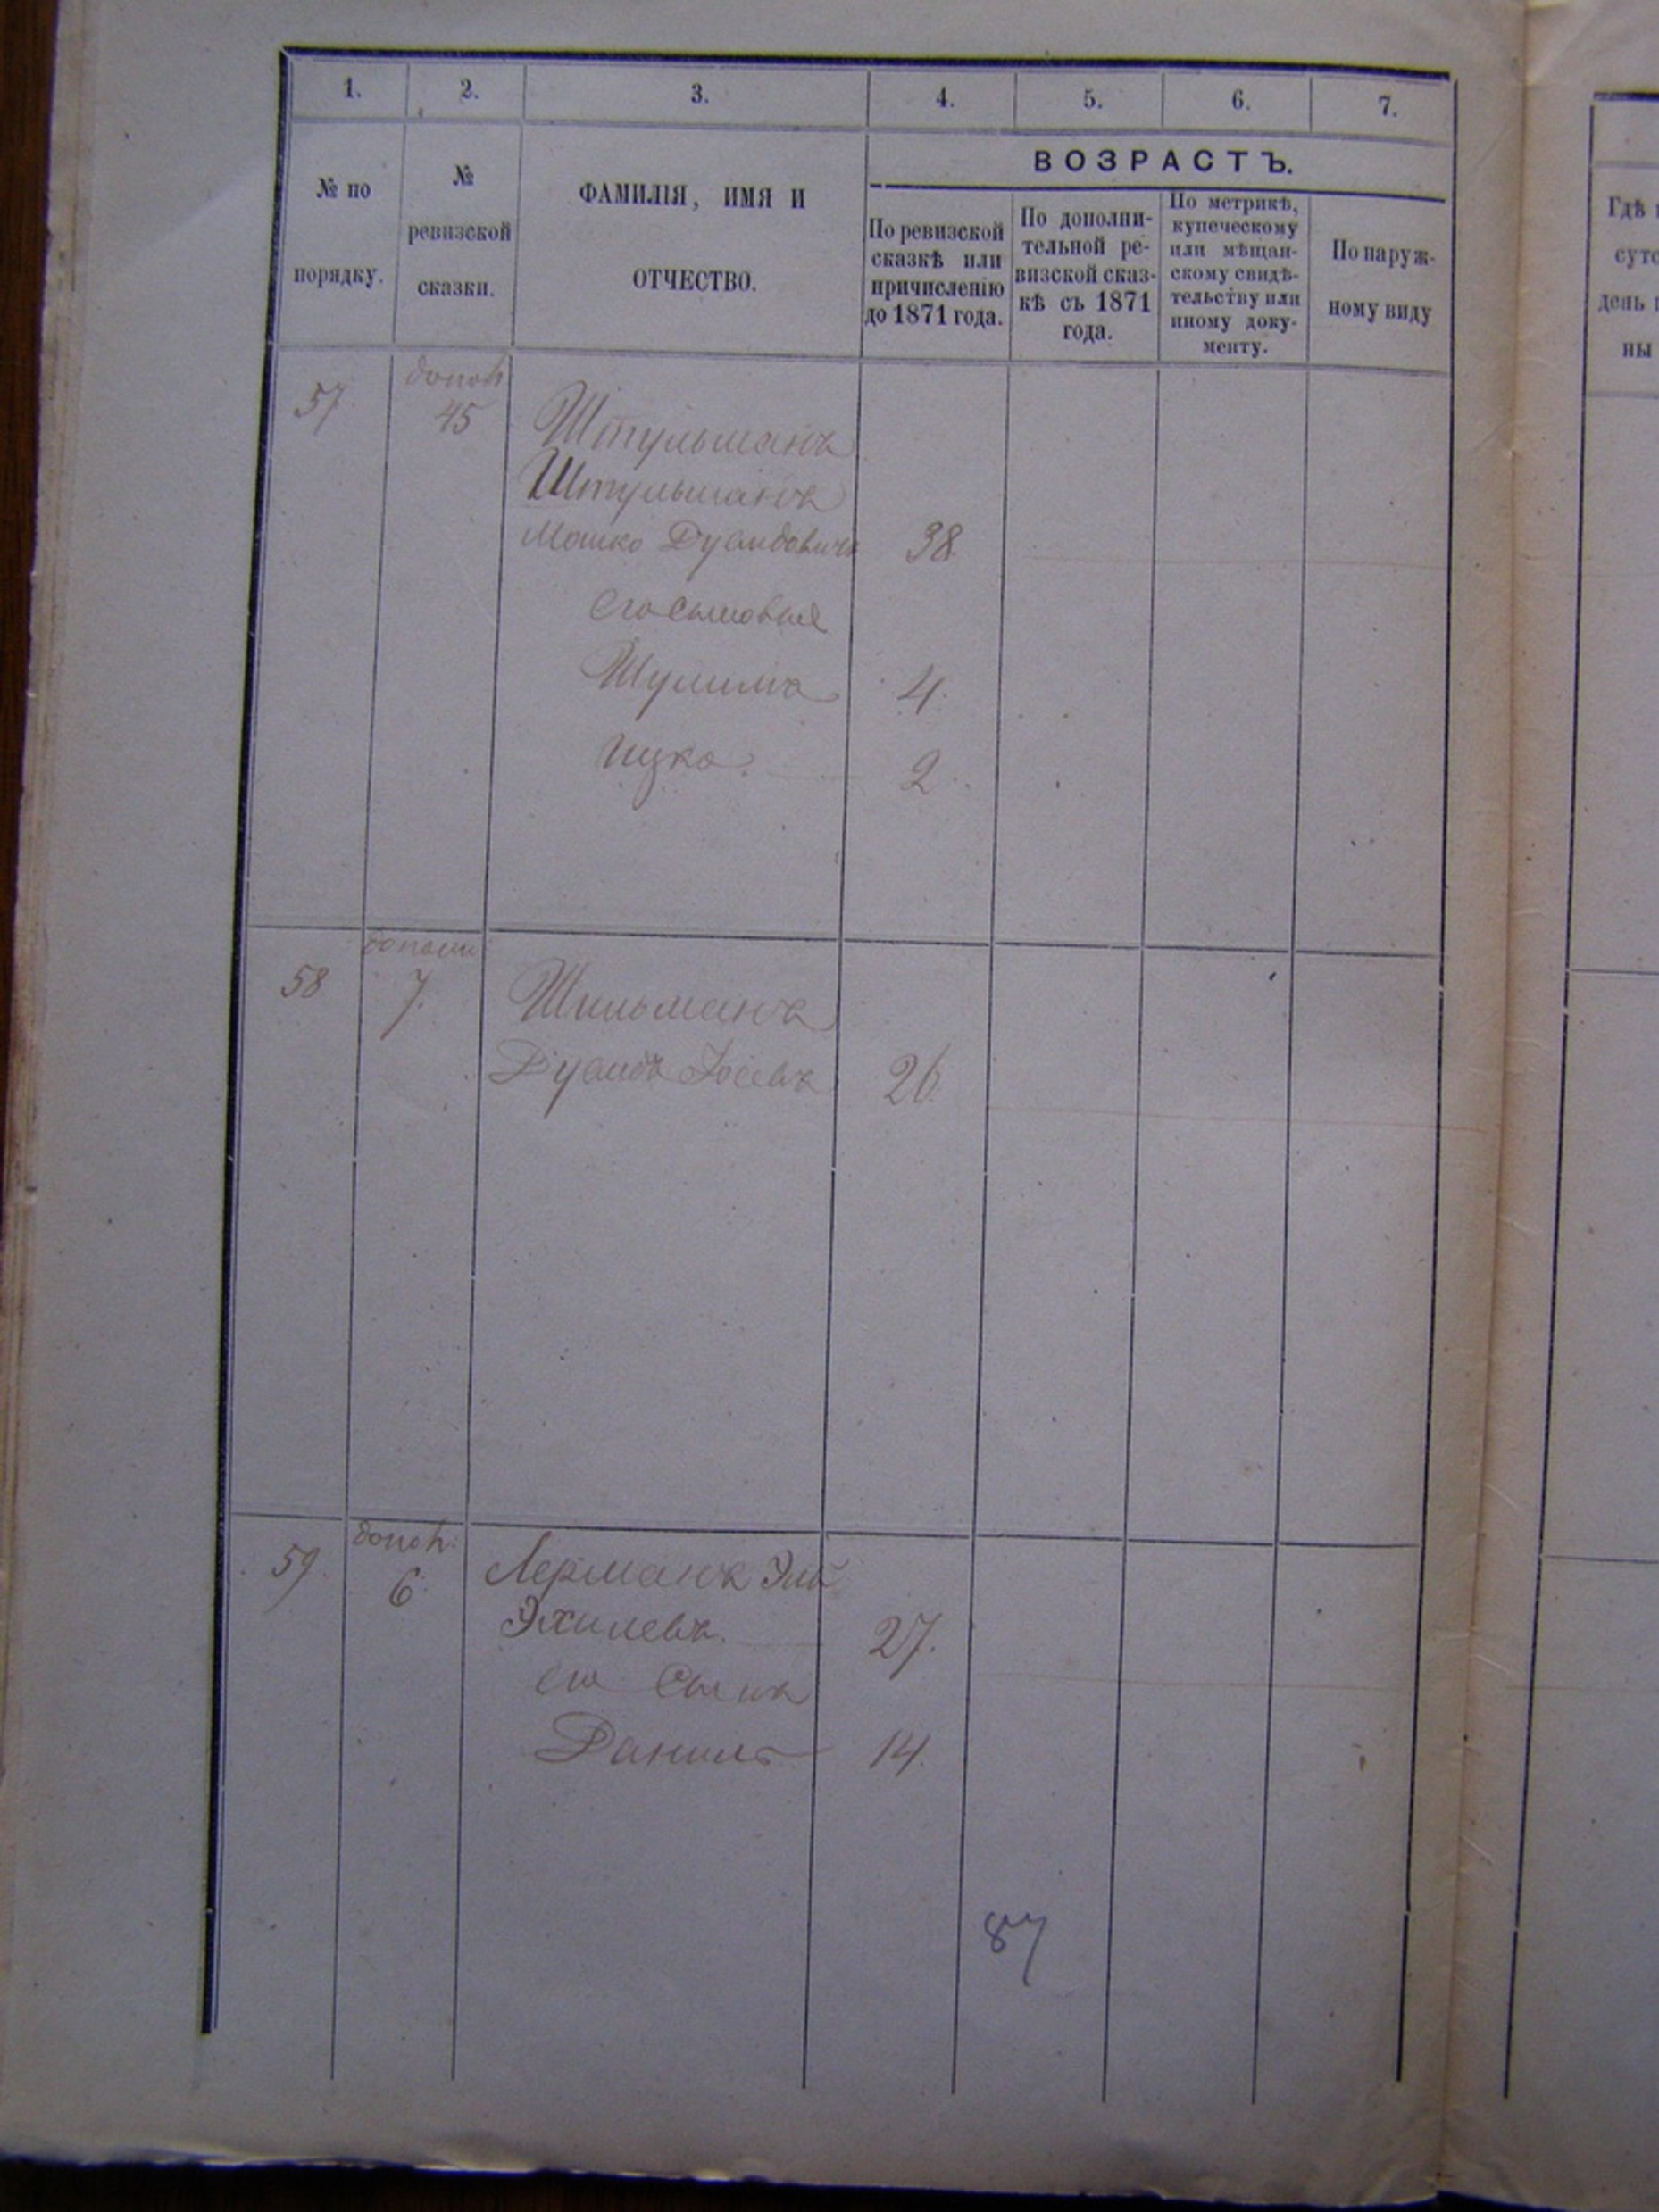 1. 2. 3. 4. 5. 6. 7.
№ по порядку.
№ ревизской сказки.
ФАМИЛІЯ, ИМЯ И
ОТЧЕСТВО.
ВОЗРАСТЪ.
По ревизской
сказкѣ или
причисленію
до 1871 года.
По дополни-
тельной ре-
визской сказ-
кѣ съ 1871
года.
По метрикѣ,
купеческому
или мѣщан-
скому свидѣ-
тельству или
иному доку-
менту.
По наруж-
ному виду
Гдѣ
день
ны
57 45 Штульманъ
Штульманъ
Мошко Дувидовичъ 38
Его сыновья
Шулимъ 4.
Ицко. 2.
58 7. Шильманъ
Дувидъ Іосевъ 26.
59. допол:
6. Лерманъ
Эхилевъ. 27.
его сынъ
Данилъ 14.
87